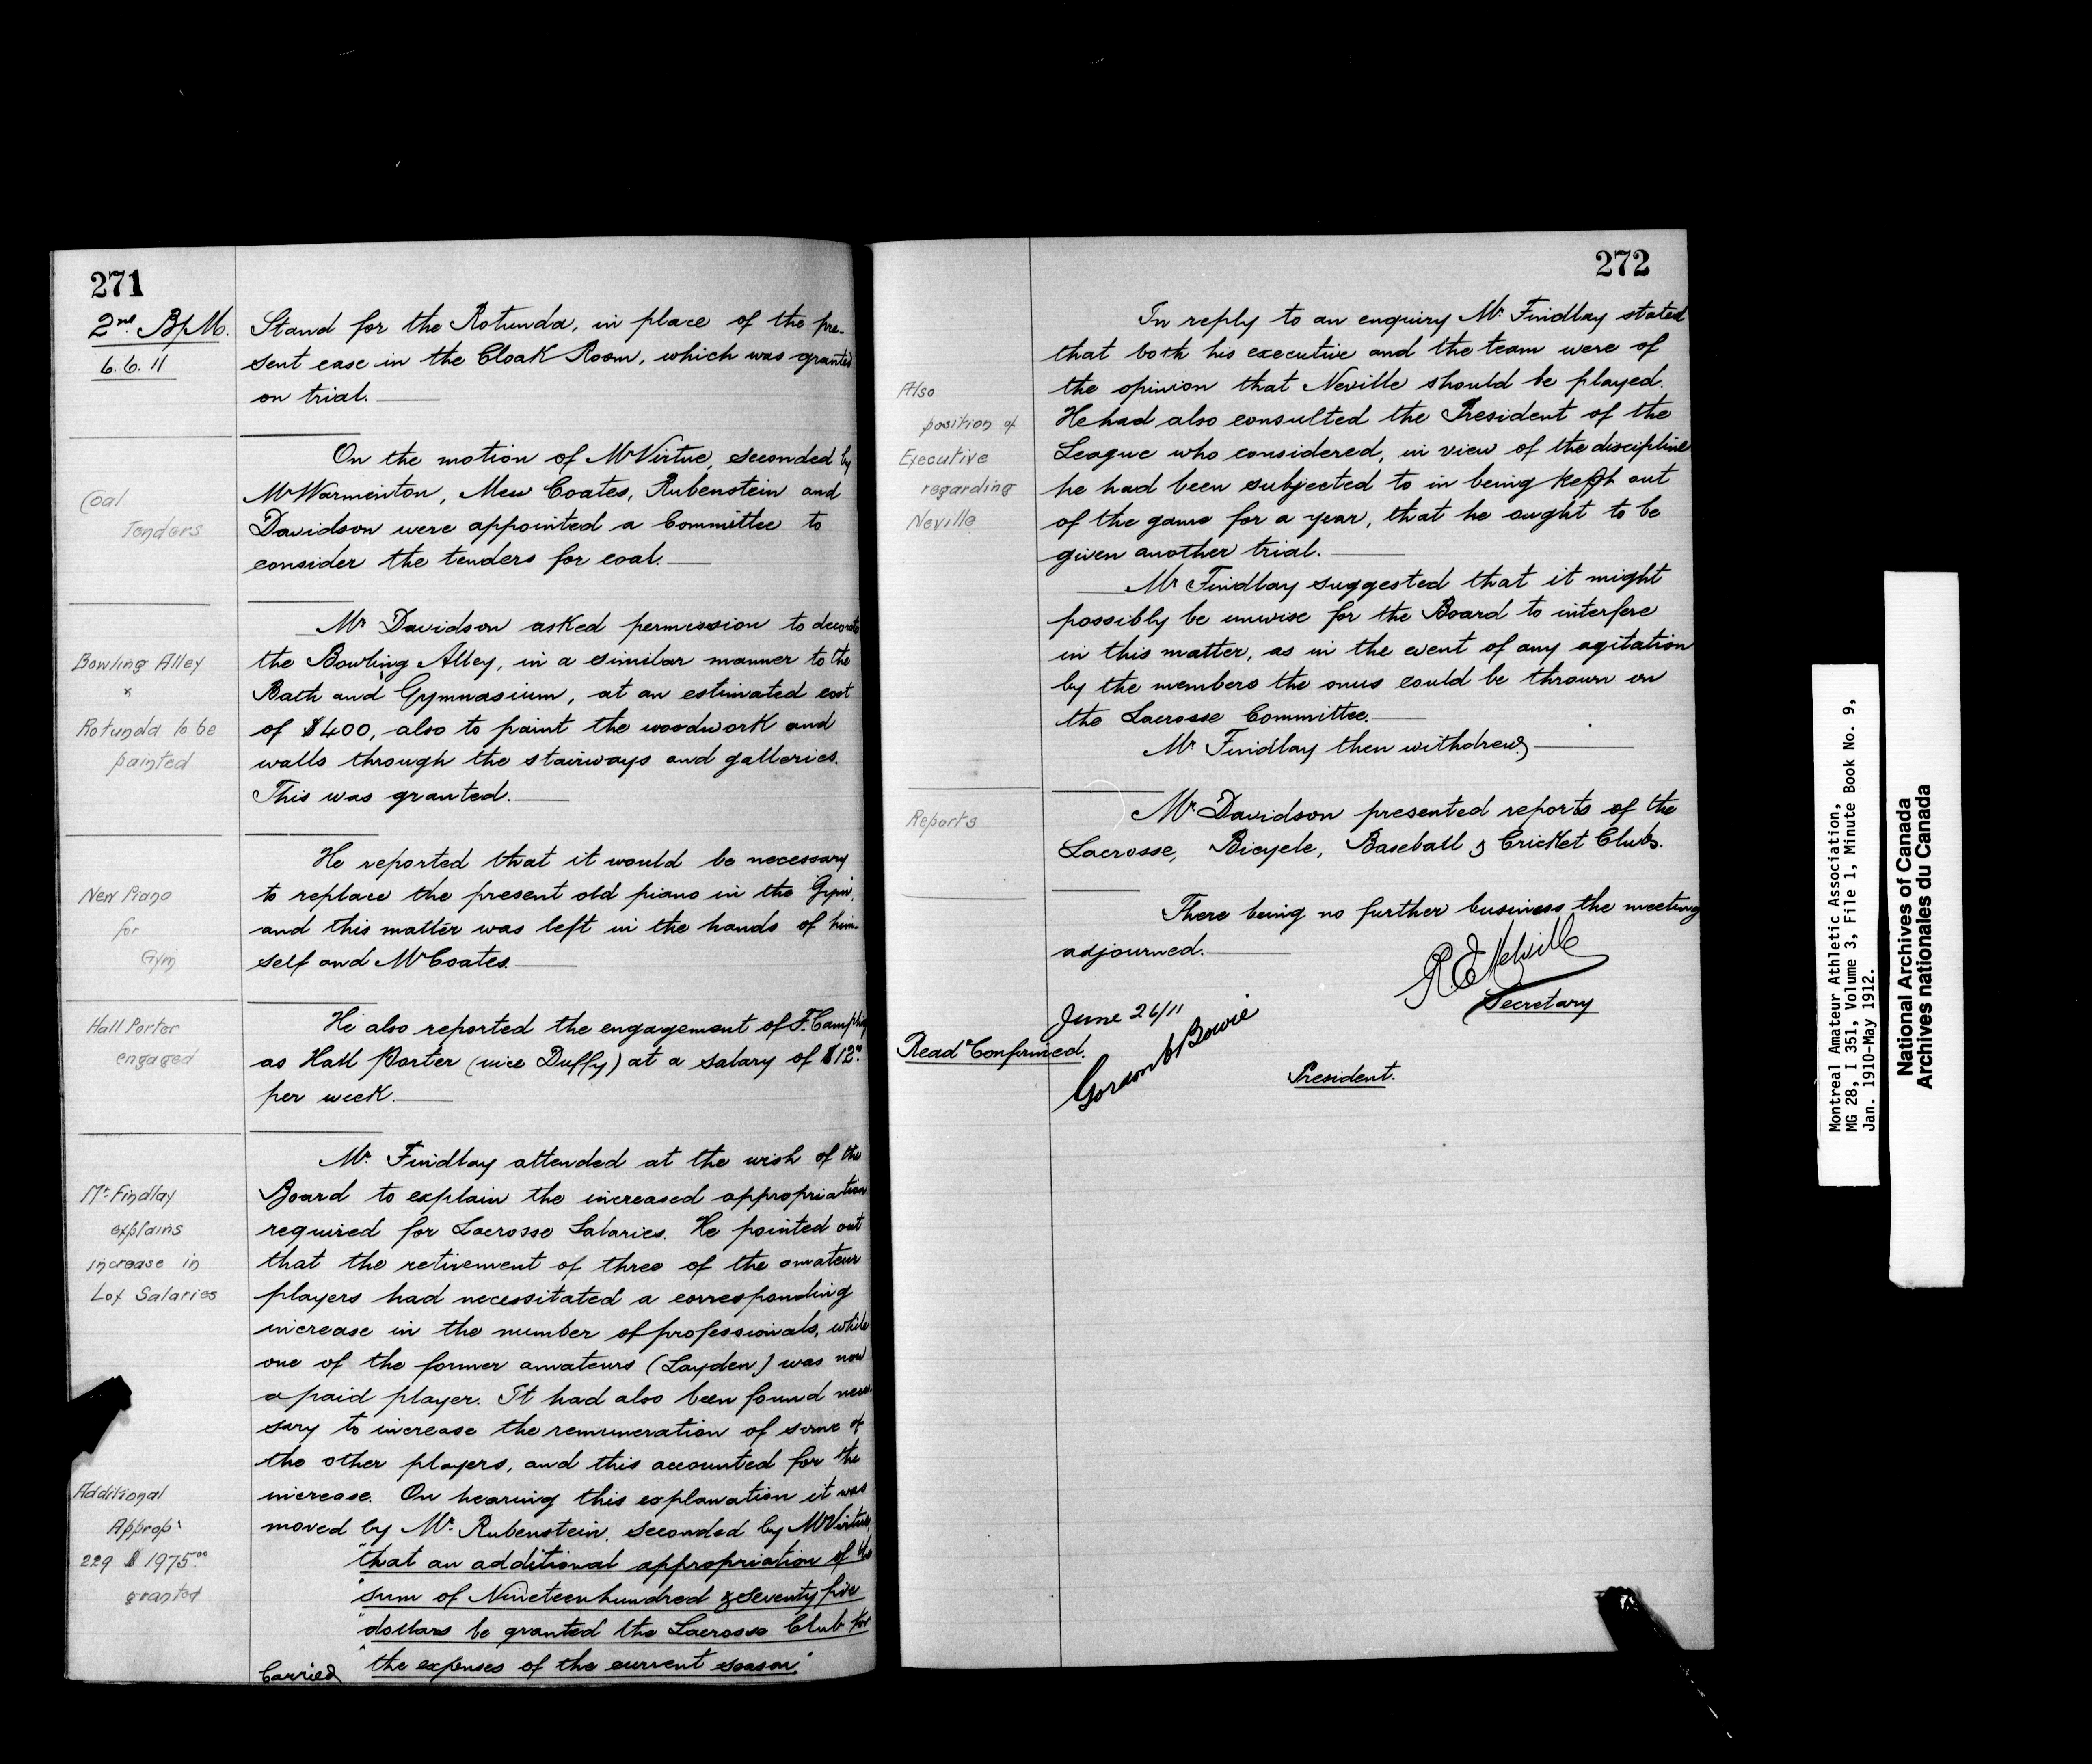 271
2nd B/M.
6.6.11
Stand for the Rotunda, in place of the pre-
sent case in the Cloak Room, which was granted
on trial.
Coal
Tenders
On the motion of Mr Virtue, seconded by
Mr Warminton, Mess Coates, Rubenstein and
Davidson were appointed a Committee to
consider the tenders for coal.
Bowling Alley
&
Rotunda to be
painted
Mr Davidson asked permission to decorate
the Bowling Alley, in a similar manner to the
Bath and Gymnasium, at an estimated cost
of $400, also to paint the woodwork and
walls through the stairways and galleries.
This was granted.
New Piano
for
Gym
He reported that it would be necessary
to replace the present old piano in the Gym.
and this matter was left in the hands of him-
self and Mr Coates.
Hall Porter
engaged
He also reported the engagement of F.
as Hall Porter (vice Duffy) at a salary of $12.00
per week.
Mr Findlay
explains
increase in
Lax Salaries
Mr. Findlay attended at the wish of the
Board to explain the increased appropriation
required for Lacrosse Salaries. He pointed out
that the retirement of three of the amateur
players had necessitated a corresponding
increase in the number of professionals, while
one of the former amateurs (Layden) was now
a paid player. It had also been found neces-
sary to increase the remuneration of some of
the other players, and this accounted for the
increase. On hearing this explanation it was
moved by Mr. Rubenstein, seconded by Mr Virtue,
Additional
Approp:
229 $1975.00
granted
"that an additional appropriation of the
"sum of Nineteen hundred & seventy five
"dollars be granted the Lacrosse Club for
"the expenses of the current season"
Carried
272
Also
position of
Executive
regarding
Neville
In reply to an enquiry Mr. Findlay stated
that both his executive and the team were of
the opinion that Neville should be played.
He had also consulted the President of the
League who considered, in view of the discipline
he had been subjected to in being kept out
of the game for a year, that he ought to be
given another trial.
Mr Findlay suggested that it might
possibly be unwise for the Board to interfere
in this matter, as in the event of any agitation
by the members the onus could be thrown on
the Lacrosse Committee.
Mr Findlay then withdrew.
Reports
Mr. Davidson presented reports of the
Lacrosse, Bicycle, Baseball & Cricket Clubs.
There being no further business the meeting
adjourned.
R E Melville
Secretary
June 26/11
Read & Confirmed.
Gordon Bowie
President.
Montreal Amateur Athletic Association,
MG 28, I 351, Volume 3, File 1, Minute Book No. 9,
Jan. 1910-May 1912.
National Archives of Canada
Archives nationales du Canada